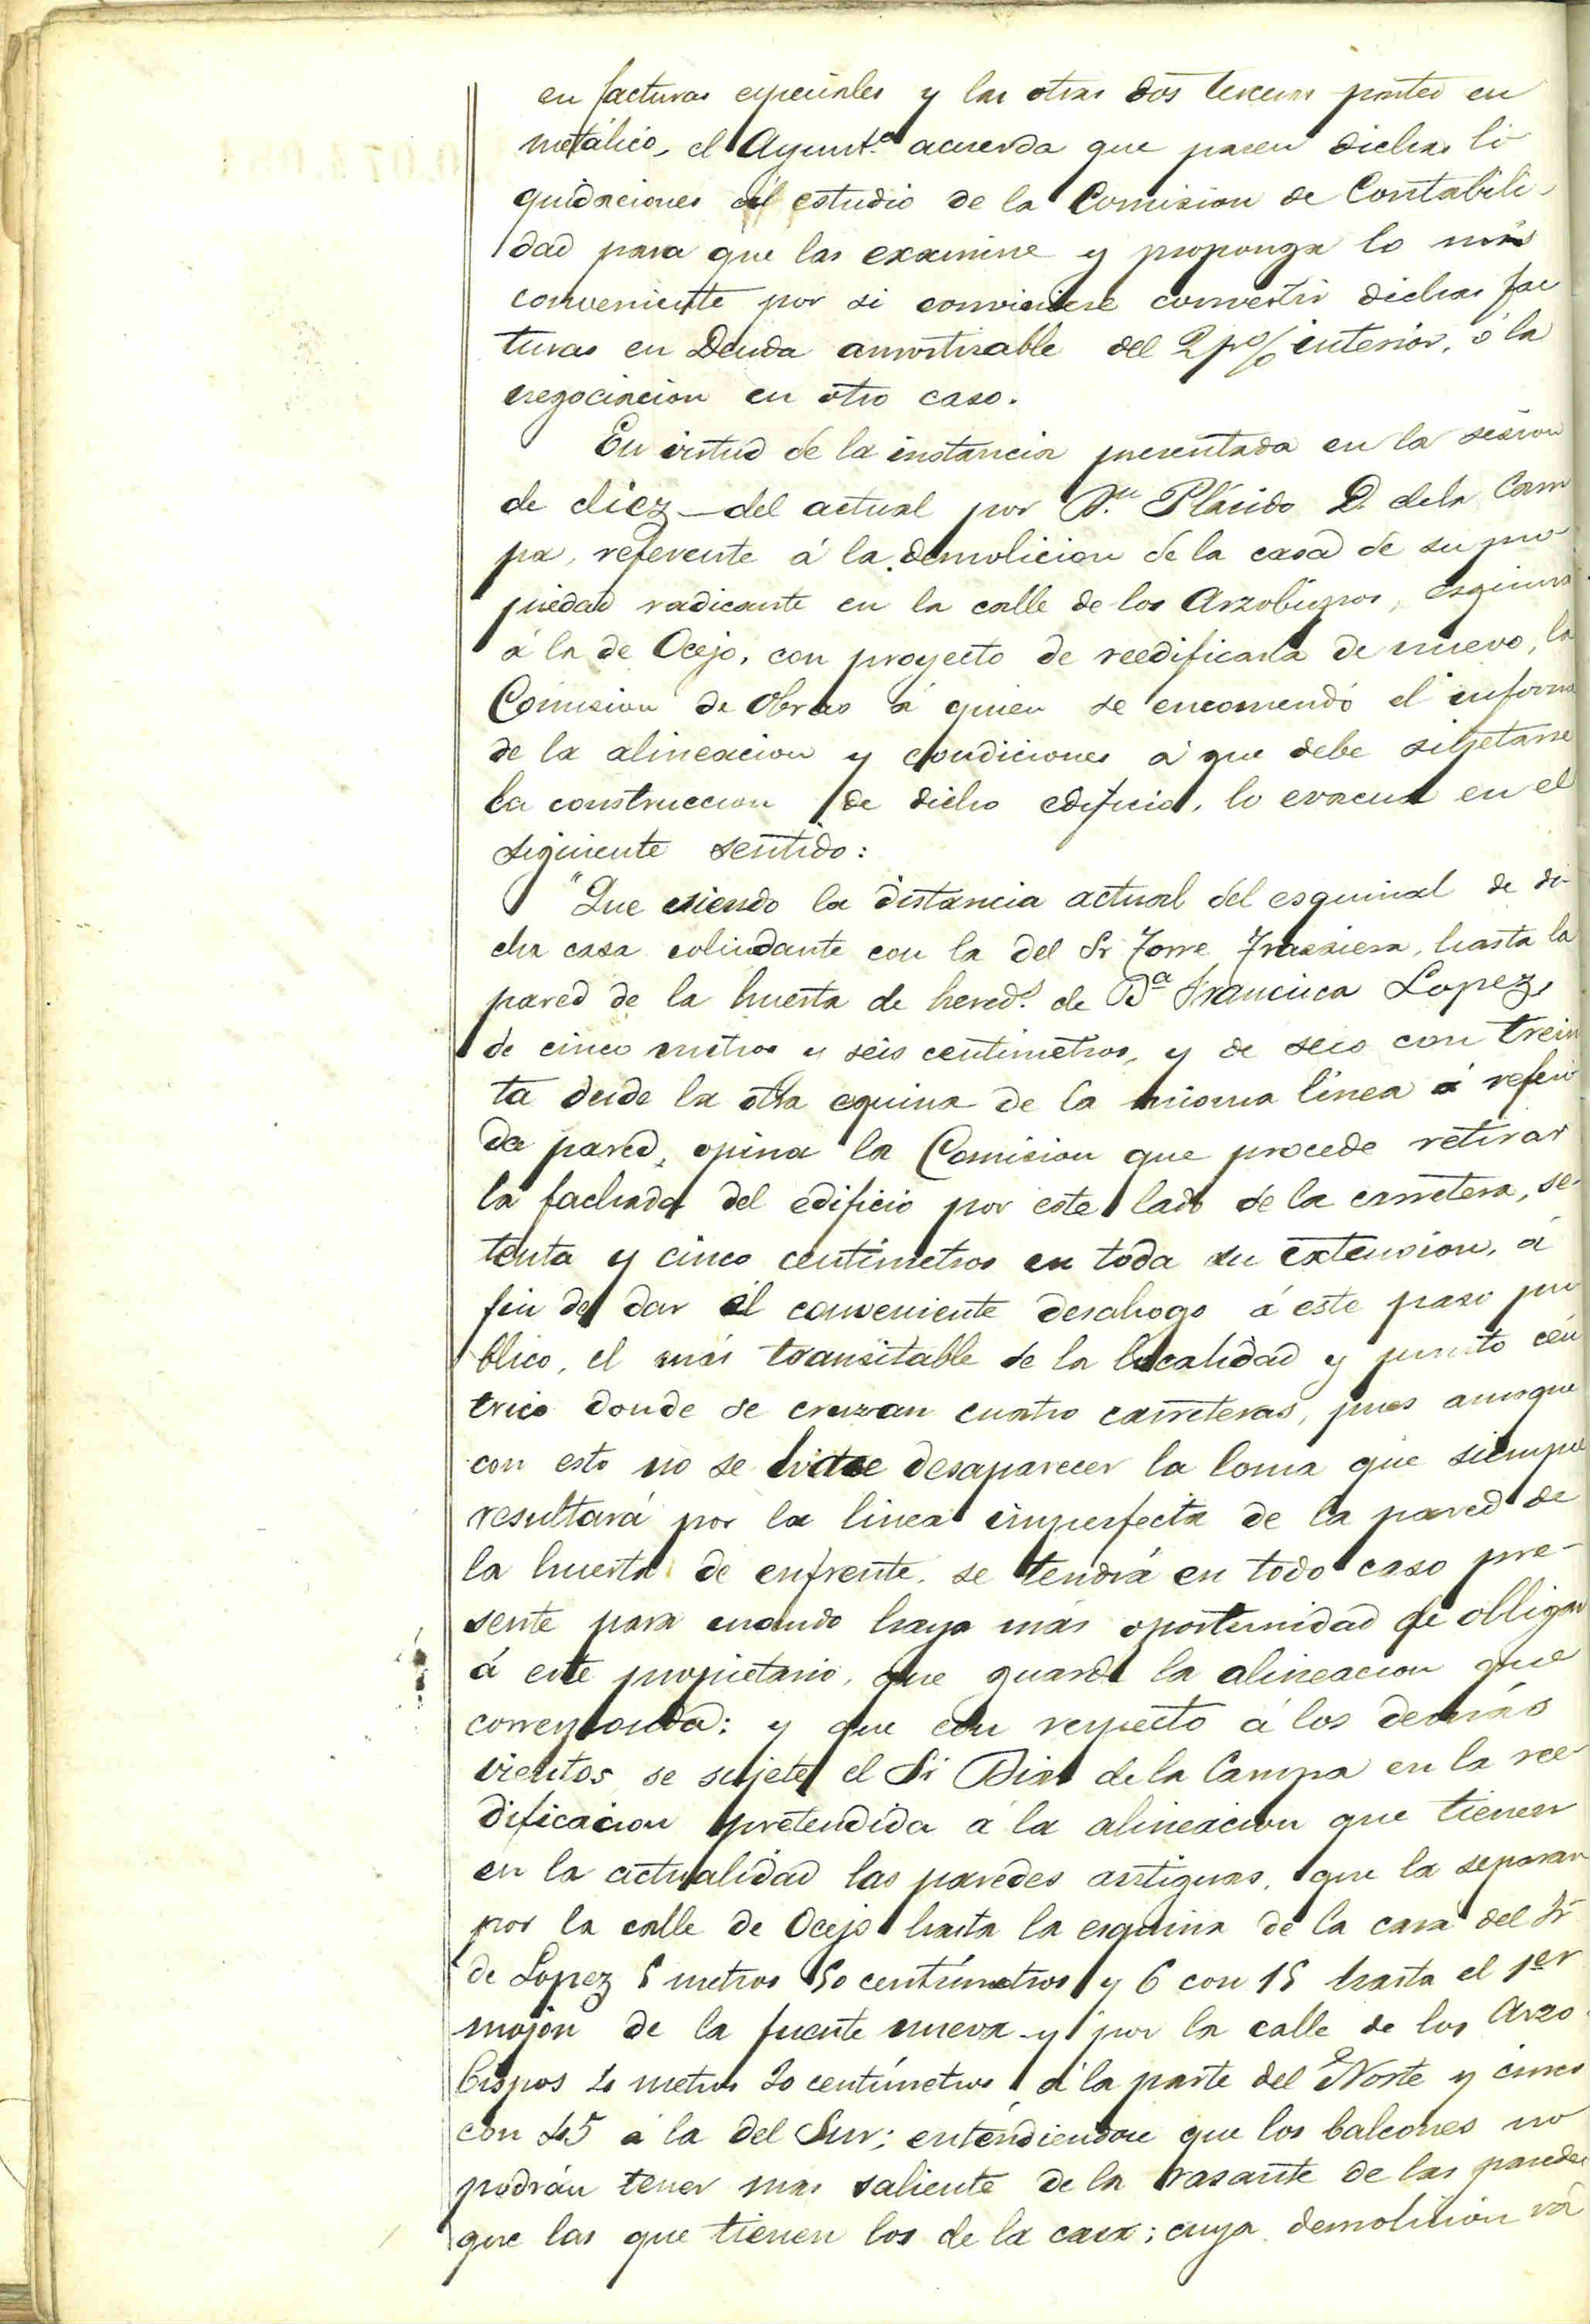 en facturas especiales y las otras dos terceras partes en
metálico, el Ayunt.º acuerda que pasen dichas li
quidaciones al estudio de la Comision de Contabili-
dad para que las examine y proponga lo más
conveniente por si conviniese convertir dichas fac
turas en Deuda amortizable del 2 p% interior, ó la
negociacion en otro caso.
En virtud de la instancia presentada en la sesion
de diez del actual por D.n Plácido D. de la Cam
pa, referente á la demolicion de la casa de su pro
piedad radicante en la calle de los Arzobispos, esquina
á la de Ocejo, con proyecto de reedificarla de nuevo, la
Comision de Obras á quien se encomendó el informe
de la alineacion y condiciones á que debe sujetarse
la construccion de dicho edificio, lo evacua en el
siguiente sentido:
"Que siendo la distancia actual del esquinal de di
cha casa colindante con la del Sr Torre Trassiera, hasta la
pared de la huerta de hered.s de D.ª Francisca Lopez,
de cinco metros y seis centimetros, y de seis con trein
ta desde la otra esquina de la misma línea á referi
da pared, opina la Comision que procede retirar
la fachada del edificio por este lado de la carretera, se-
tenta y cinco centímetros en toda su extension, á
fin de dar el conveniente desahogo á este paso pu
blico, el más transitable de la localidad y punto cén
trico donde se cruzan cuatro carreteras, pues aunque
con esto no se hace desaparecer la loma que siempre
resultará por la linea imperfecta de la pared de
la huerta de enfrente, se tendrá en todo caso pre-
sente para cuando haya más oportunidad de obligar
á este propietario, que guarde la alineacion que
corresponda: y que con respecto á los demás
vientos se sujete el Sr Diaz de la Campa en la ree
dificacion pretendida á la alineacion que tienen
en la actualidad las paredes antiguas, que la separan
por la calle de Ocejo hasta la esquina de la casa del Sr
de Lopez 5 metros 50 centímetros y 6 con 15 hasta el 1er
mojon de la fuente nueva y por la calle de los Arzo
bispos 4 metros 20 centímetros á la parte del Norte y cinco
con 45 á la del Sur; entendiendose que los balcones no
podrán tener mas saliente de la rasante de las paredes
que las que tienen los de la casa; cuya demolicion vá